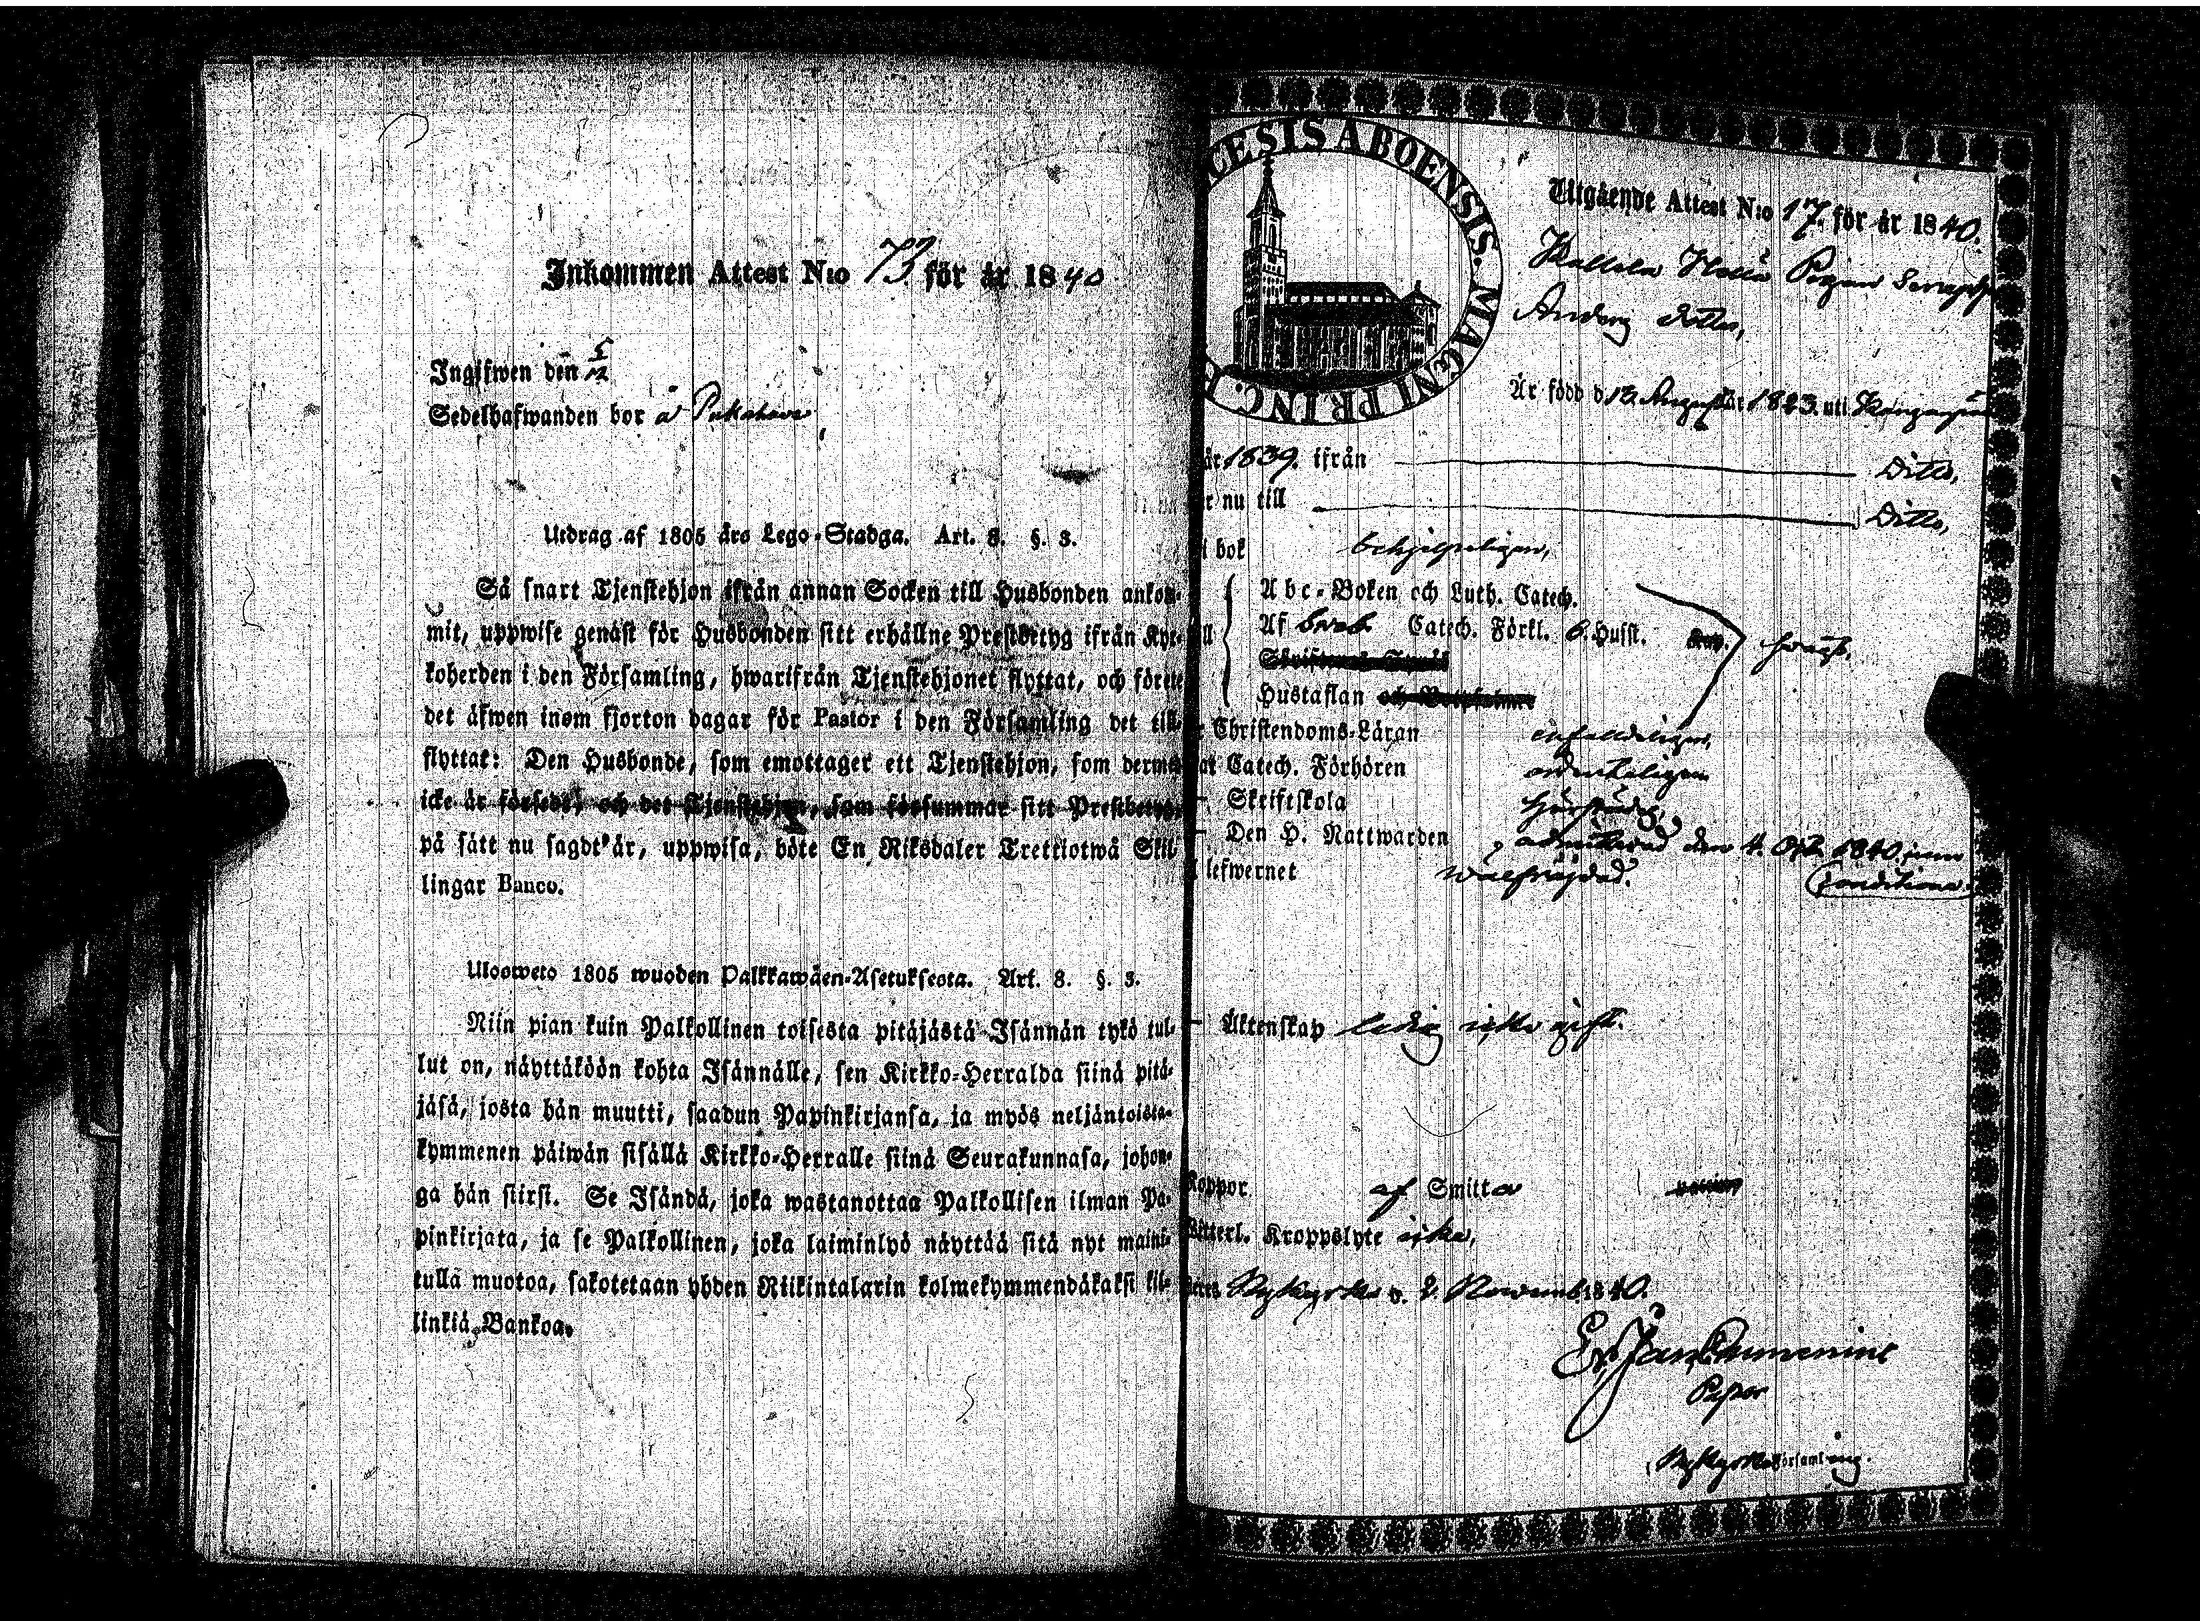 Inkommen Attest N:o 73 för år 1840
Ingifwen den 5/12
Sedelhafwanden bor å
Utdrag af 1805 års Lego-Stadga. Art. 8. §. 3.
Så snart Tjenstehjon ifrån annan Socken till Husbonden ankom-
mit, uppwise genast för Husbonden sitt erhållne Prestbetyg ifrån Kyr-
koherden i den Församling, hwarifrån Tjenstehjonet flyttat, och förete
det äfwen inom fjorton dagar för Pastor i den Församling det till-
flyttat: Den Husbonde, som emottager ett Tjenstehjon, som dermed
icke är försedt, och det Tjenstehjon, som försummar sitt Prestbetyg,
på sätt nu sagdt är, uppwisa, böte En Riksdaler Trettiotwå Skil-
lingar Banco.
Ulosweto 1805 wuoden Palkkawäen-Asetuksesta. Art. 8. §. 3.
Niin pian kuin Palkollinen toisesta pitäjästä Isännän tykö tul-
lut on, näyttäköön kohta Isännälle, sen Kirkko-Herralda siinä pitä-
jäsä, josta hän muutti, saadun Papinkirjansa, ja myös neljäntoista-
kymmenen päiwän sisällä Kirkko-Herralle siinä Seurakunnasa, johon-
ga hän siirsi. Se Isändä, joka wastanottaa Palkollisen ilman Pa-
pinkirjata, ja se Palkollinen, joka laiminlyö näyttää sitä nyt maini-
tulla muotoa, sakotetaan yhden Riikintalarin kolmekymmendäkaksi kil-
linkiä Bankoa.
CESIS ABOENSIS. MAGNI PRINC. F
Utgående Attest N:o 17. för år 1840.
Pigan
Anders dotter,
Är född d 12 August år 1823. uti
år 1839. ifrån Ditto,
r nu till Ditto,
i bok behjelpeligen,
Abc-Boken och Luth. Catech.
Af Sveb. Catech. Förkl. o. Husst.
Hustaflan
Christendoms-Läran enfaldeligen,
at Catech. Förhören ordenteligen
Skriftskola
Den H. Nattwarden admitterad den 4. Oct. 1840.
lefwernet wälfräjdad.
Äktenskap ledig icke gift.
Koppor af Smitta
Ytterl. Kroppslyte icke,
Nykyrka d. 2. Novemb. 1840.
Pastor
Nykyrka Församling.